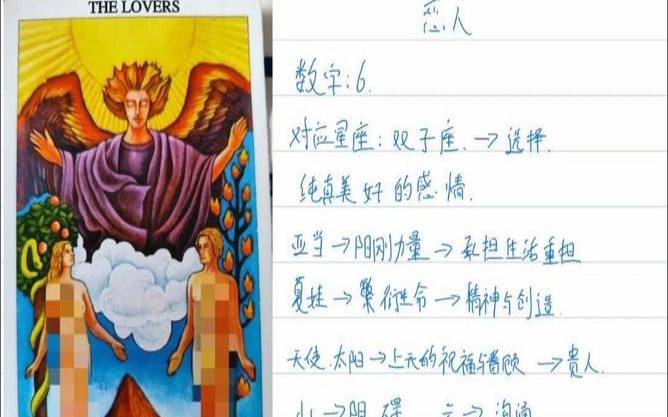 THE LOVERS
恋人
数字:6.
对应星座:双子座.→选择.
纯真美好的感情.
亚当→阳刚力量→承担生活重担
夏娃→繁衍生命→精神与创造.
天使.太阳→上天的祝福与眷顾→贵人.
山→阻碍 云→沟通